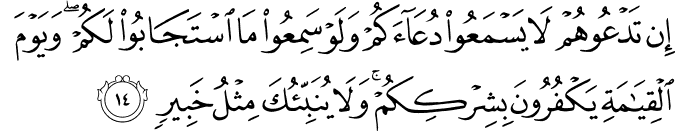 إِن تَدْعُوهُمْ لَا يَسْمَعُوا۟ دُعَآءَكُمْ وَلَوْ سَمِعُوا۟ مَا ٱسْتَجَابُوا۟ لَكُمْ ۖ وَيَوْمَ
ٱلْقِيَـٰمَةِ يَكْفُرُونَ بِشِرْكِكُمْ ۚ وَلَا يُنَبِّئُكَ مِثْلُ خَبِيرٍ ١٤